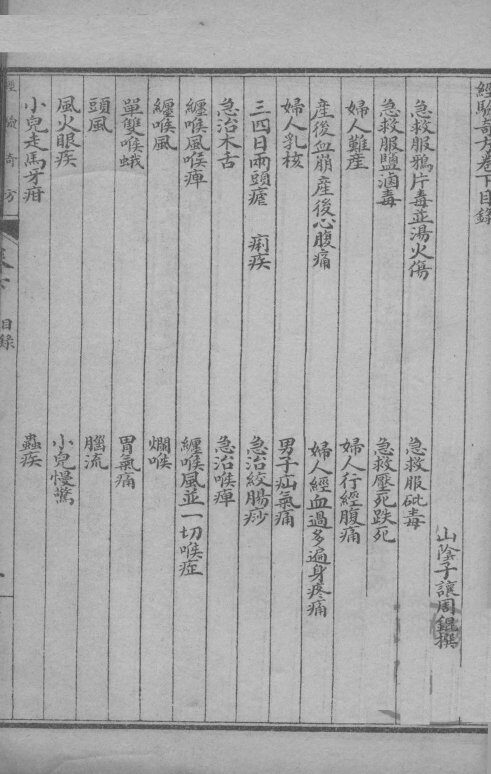 經驗奇方卷下目錄
山陰子讓周鋥撰
急救服鴉片毒並湯火傷
急救服砒毒
急救服鹽滷毒
急救壓死跌死
婦人難產
婦人行經腹痛
產後血崩產後心腹痛
婦人經血過多遍身疼痛
婦人乳核
男子疝氣痛
三四日兩頭瘧 痢疾
急治絞腸痧
急治木舌
急治喉痺
纏喉風喉痺
纏喉風並一切喉症
纏喉風
爛喉
單雙喉蛾
胃氣痛
頭風
腦流
風火眼疾
小兒慢驚
小兒走馬牙疳
蟲疾
經驗奇方
目錄